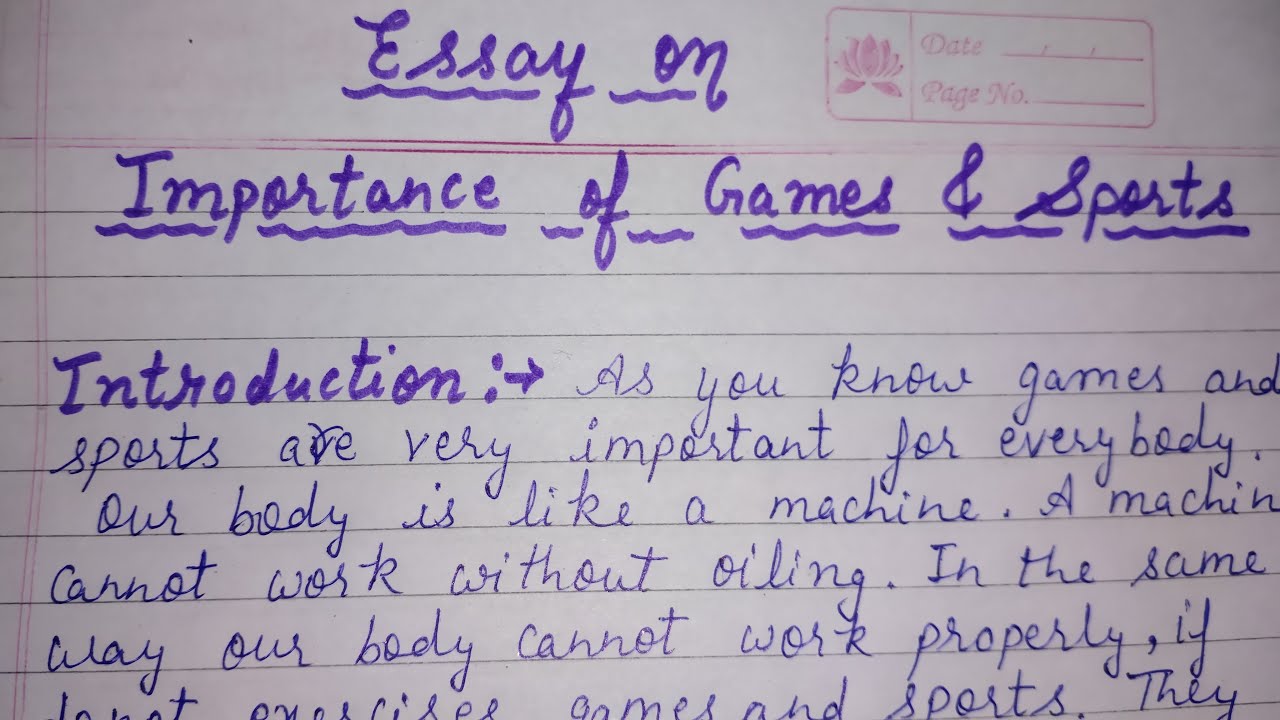 Essay on
Date
Page No.
Importance of Games & Sports
Introduction:→ As you know games and
sports are very important for everybody.
Our body is like a machine. A machin
cannot work without oiling. In the same
way our body cannot work properly, if
donot exercises games and sports. They